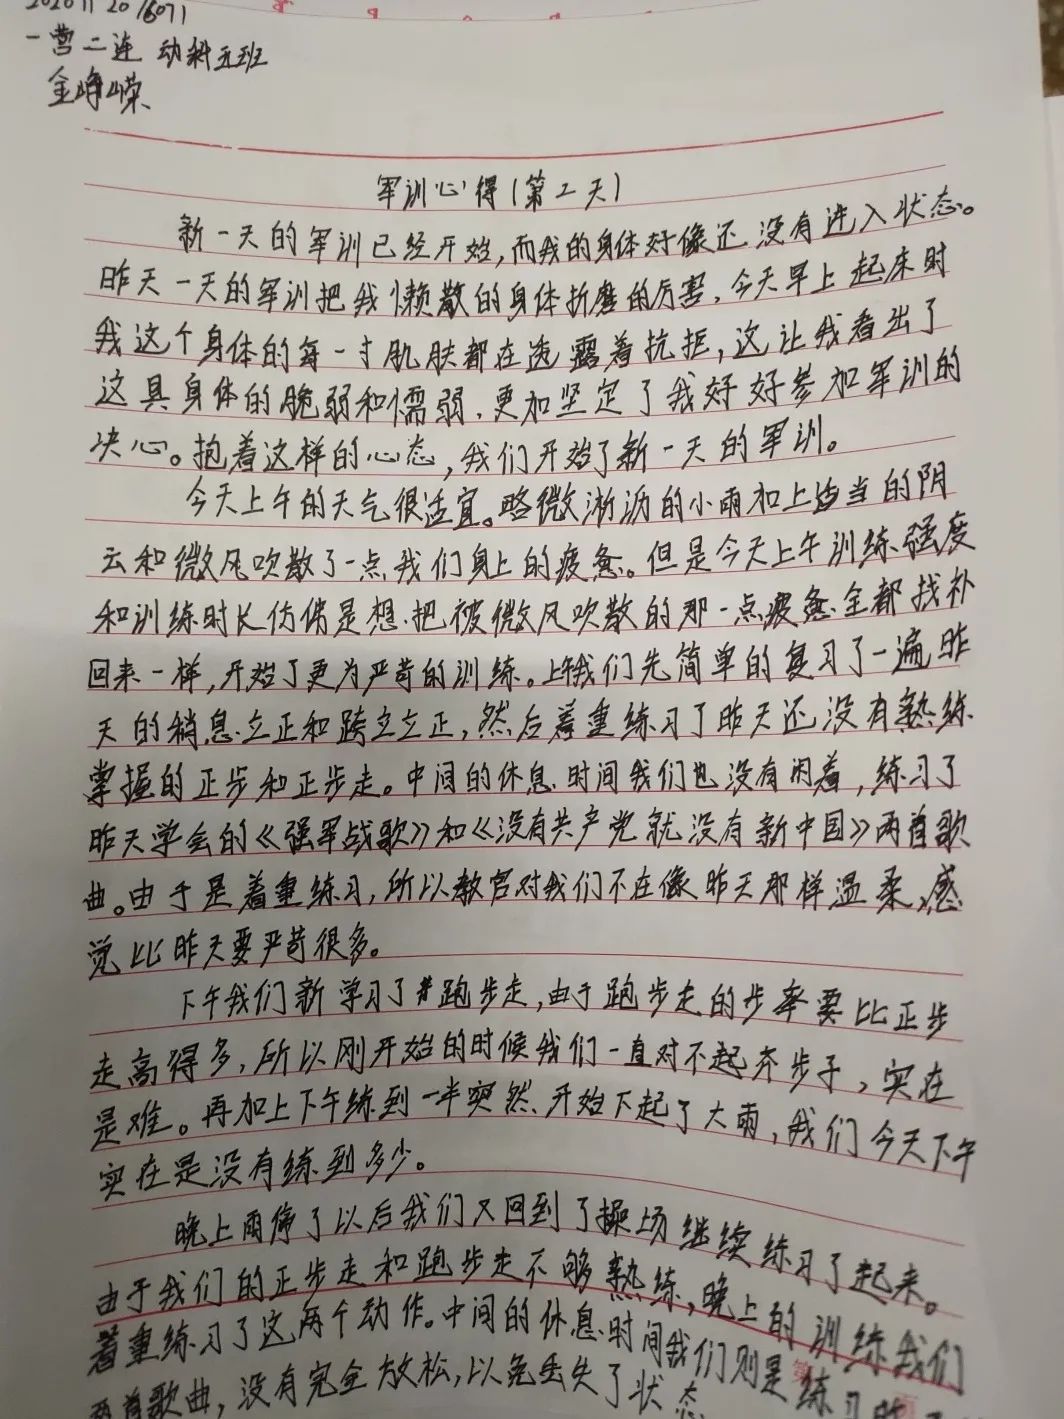 一营二连 动科五班
金峥嵘
军训心得(第2天)
新一天的军训已经开始,而我的身体好像还没有进入状态。
昨天一天的军训把我懒散的身体折磨的厉害,今天早上起床时
我这个身体的每一寸肌肤都在透露着抗拒,这让我看出了
这具身体的脆弱和懦弱,更加坚定了我好好参加军训的
决心。抱着这样的心态,我们开始了新一天的军训。
今天上午的天气很适宜。略微淅沥的小雨加上适当的阴
云和微风吹散了一点我们身上的疲惫。但是今天上午训练强度
和训练时长仿佛是想把被微风吹散的那一点疲惫全都找补
回来一样,开始了更为严苛的训练。上午我们先简单的复习了一遍昨
天的稍息立正和跨立立正,然后着重练习了昨天还没有熟练
掌握的正步和正步走。中间的休息时间我们也没有闲着,练习了
昨天学会的《强军战歌》和《没有共产党就没有新中国》两首歌
曲。由于是着重练习,所以教官对我们不在像昨天那样温柔,感
觉比昨天要严苛很多。
下午我们新学习了跑步走,由于跑步走的步率要比正步
走高得多,所以刚开始的时候我们一直对不起齐步子,实在
是难。再加上下午练到一半突然开始下起了大雨,我们今天下午
实在是没有练到多少。
晚上雨停了以后我们又回到了操场继续练习了起来。
由于我们的正步走和跑步走不够熟练,晚上的训练我们
着重练习了这两个动作。中间的休息时间我们则是练习
两首歌曲,没有完全放松,以免丢失了状态